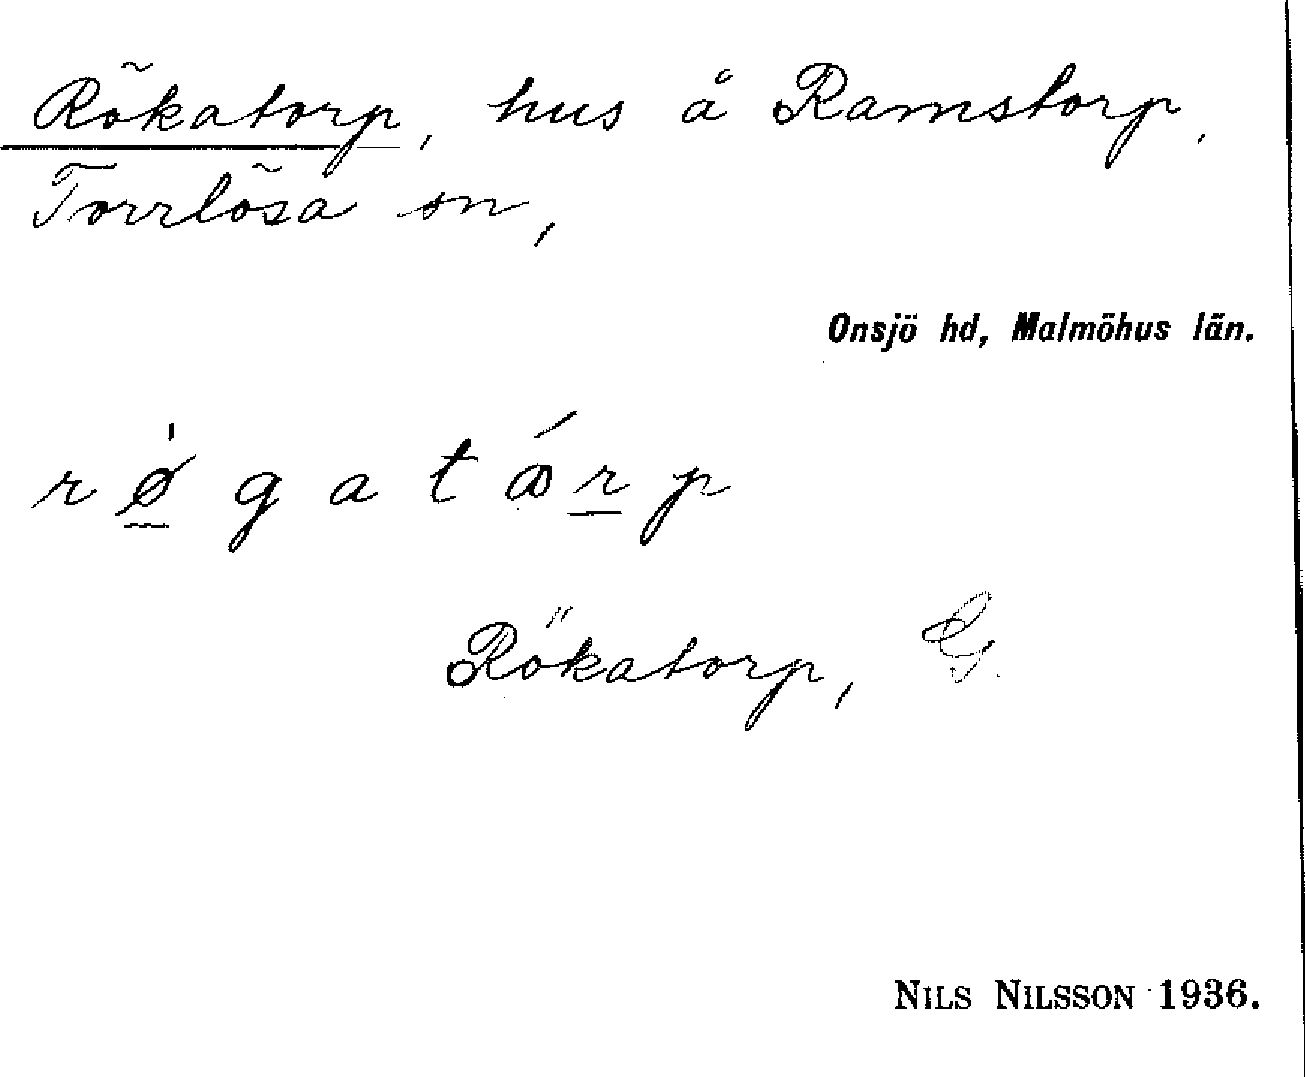 Rökatorp, hus å Ramstorp,
Torrlösa sn,
Onsjö hd, Malmöhus län.
rø̀gatárp
Rökatorp, G.
NILS NILSSON 1936.